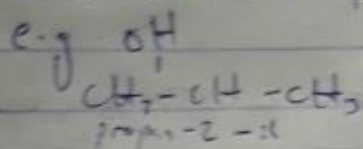 e.g OH
CH₃-CH-CH₃
-2-